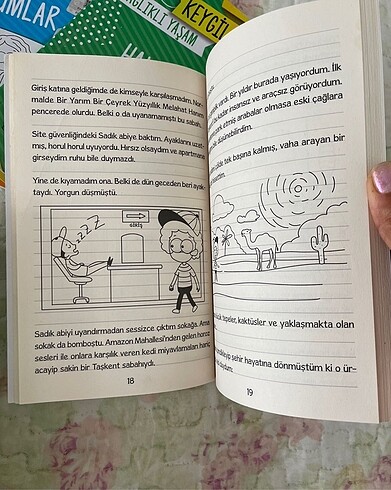 UMLAR
ĞLIKLI YAŞAM
KEYGİ
HA
Giriş katına geldiğimde de kimseyle karşılaşmadım. Nor-
malde Bir Yarım Bir Çeyrek Yüzyıllık Melahat Hanım
pencerede olurdu. Belki o da uyanamamıştı bu sabah.
Site güvenliğindeki Sadık abiye baktım. Ayaklarını uzat-
mış, horul horul uyuyordu. Hırsız olsaydım ve apartmana
girseydim ruhu bile duymazdı.
Yine de kıyamadım ona. Belki de dün geceden beri ayak-
taydı. Yorgun düşmüştü.
zzZ
GİRİŞ
Sadık abiyi uyandırmadan sessizce çıktım sokağa. Ama
sokak da bomboştu. Amazon Mahallesi'nden gelen horoz
sesleri ile onlara karşılık veren kedi miyavlamaları hariç
acayip sakin bir Taşkent sabahıydı.
18
vardı. Bir yıldır burada yaşıyordum. İlk
kadar insansız ve araçsız görüyordum.
etmiş arabalar olmasa eski çağlara
düşünebilirdim.
tek başına kalmış, vaha arayan bir
tepeler, kaktüsler ve yaklaşmakta olan
şehir hayatına dönmüştüm ki o ür-
19